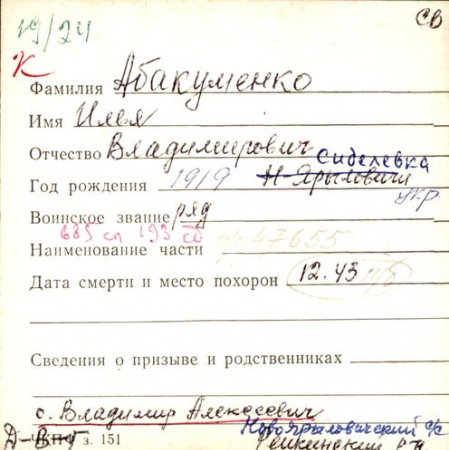 19/24 СВ
К
Фамилия Абакуменко
Имя Илья
Отчество Владимирович
Сиделевка
Год рождения 1919 Н-Ярыловичи
укр.
Воинское звание ряд
685 сп 193 сд п/п 47655
Наименование части
Дата смерти и место похорон 12.43
Сведения о призыве и родственниках
о. Владимир Алексеевич
Новоярыловический с/с
з. 151